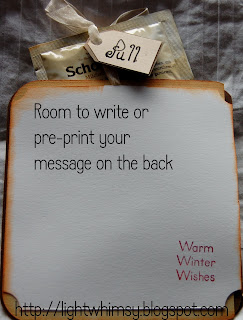 Pull
Room to write or
pre-print your
message on the back
Warm
Winter
Wishes
http://lightwhimsy.blogspot.com